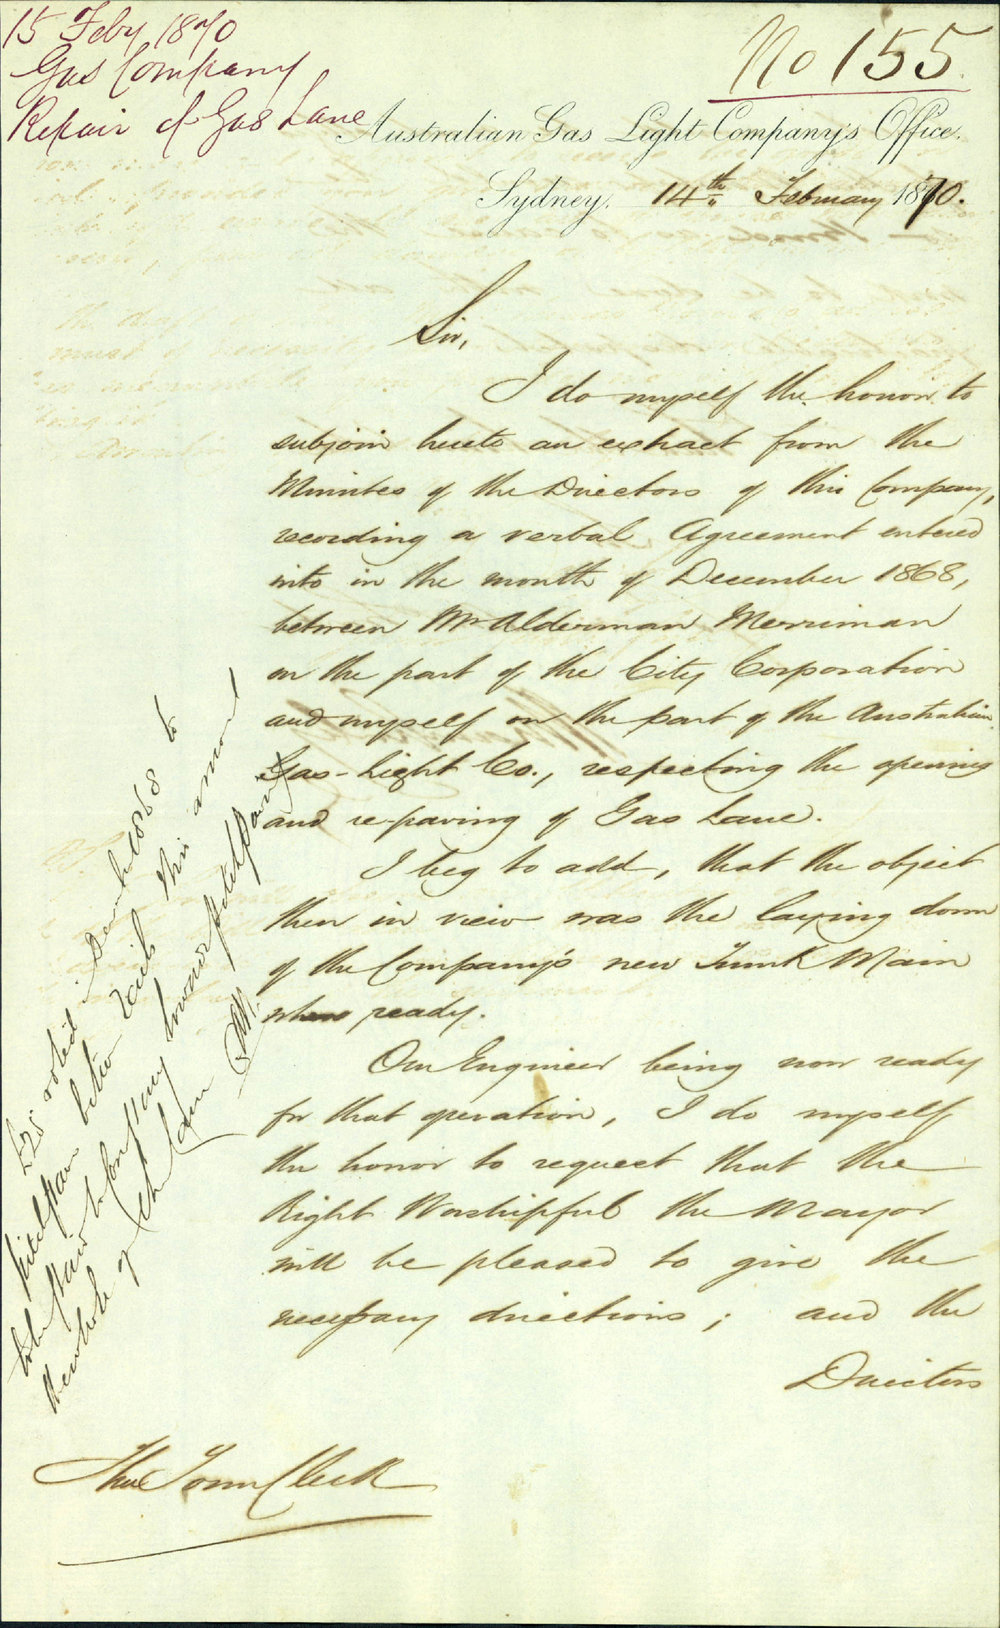 15 Feby 1870
Gas Company
Repair of Gas Lane
No 155
Australian Gas Light Company's Office.
Sydney, 14th February 1870.
Sir,
I do myself the honor to
subjoin hereto an extract from the
Minutes of the Directors of this Company,
recording a verbal Agreement entered
into in the month of December 1868,
between Mr Alderman Merriman
on the part of the City Corporation
and myself on the part of the Australian
Gas-Light Co., respecting the opening
and re-paving of Gas Lane.
I beg to add, that the object
then in view was the laying down
of the Company's new Trunk Main
when ready.
Our Engineer being now ready
for that operation, I do myself
the honor to request that the
Right Worshipful the Mayor
will be pleased to give the
necessary directions; and the
Directors
The Town Clerk
£25 voted in Decemb 1868 to
pitchpave better with this amount
to be paid by Company towards pitchpaving
the whole of the Lane